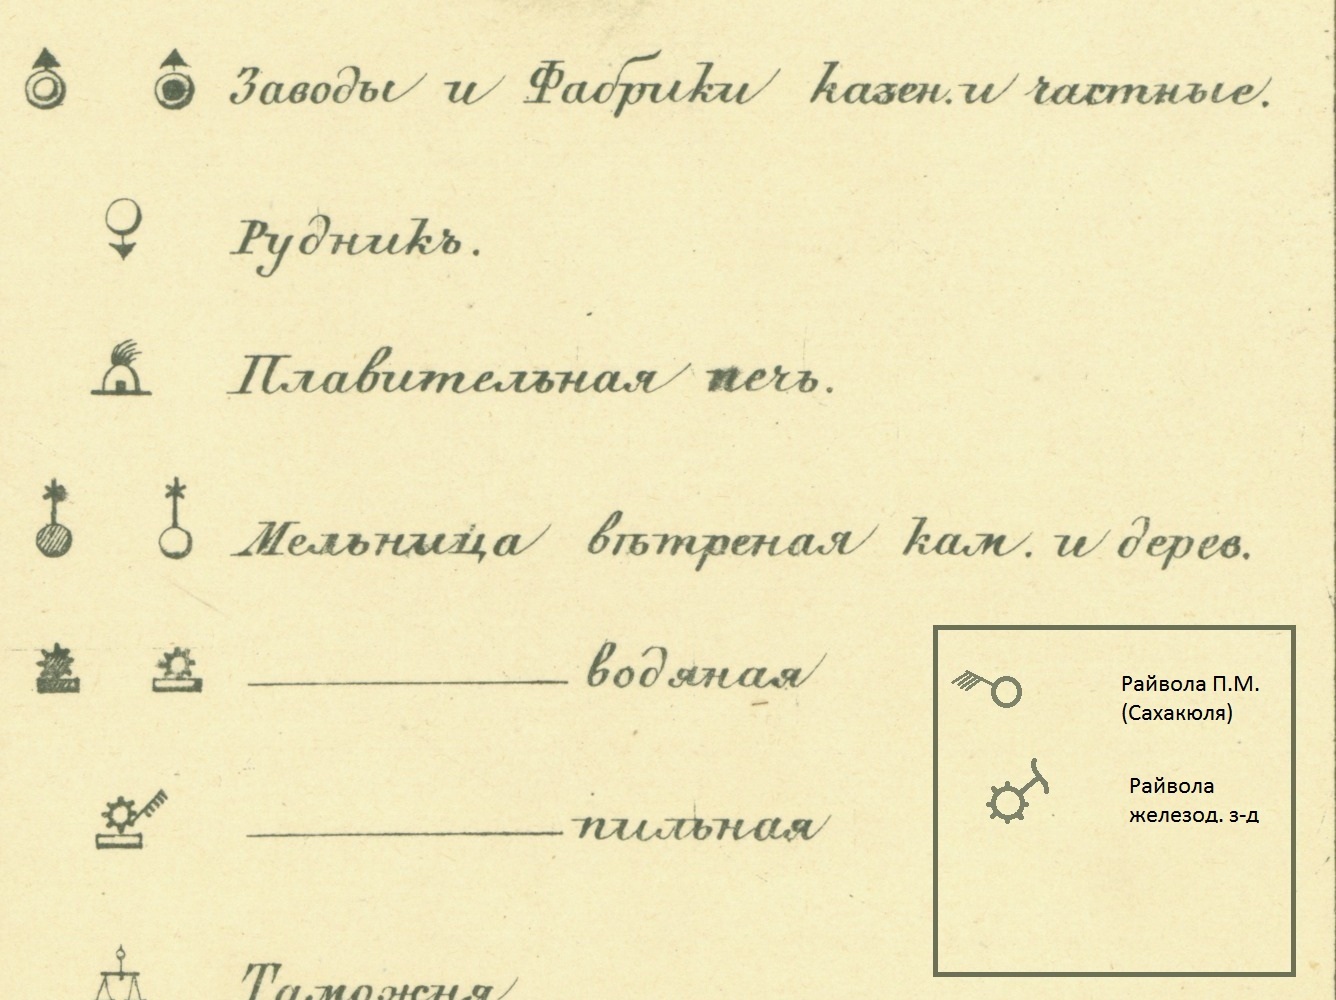 Заводы и Фабрики казен. и частные.
Рудникъ.
Плавительная печь.
Мельница вѣтреная кам. и дерев.
водяная
Райвола П.М.
(Сахакюля)
Райвола
железод. з-д
пильная
Таможня